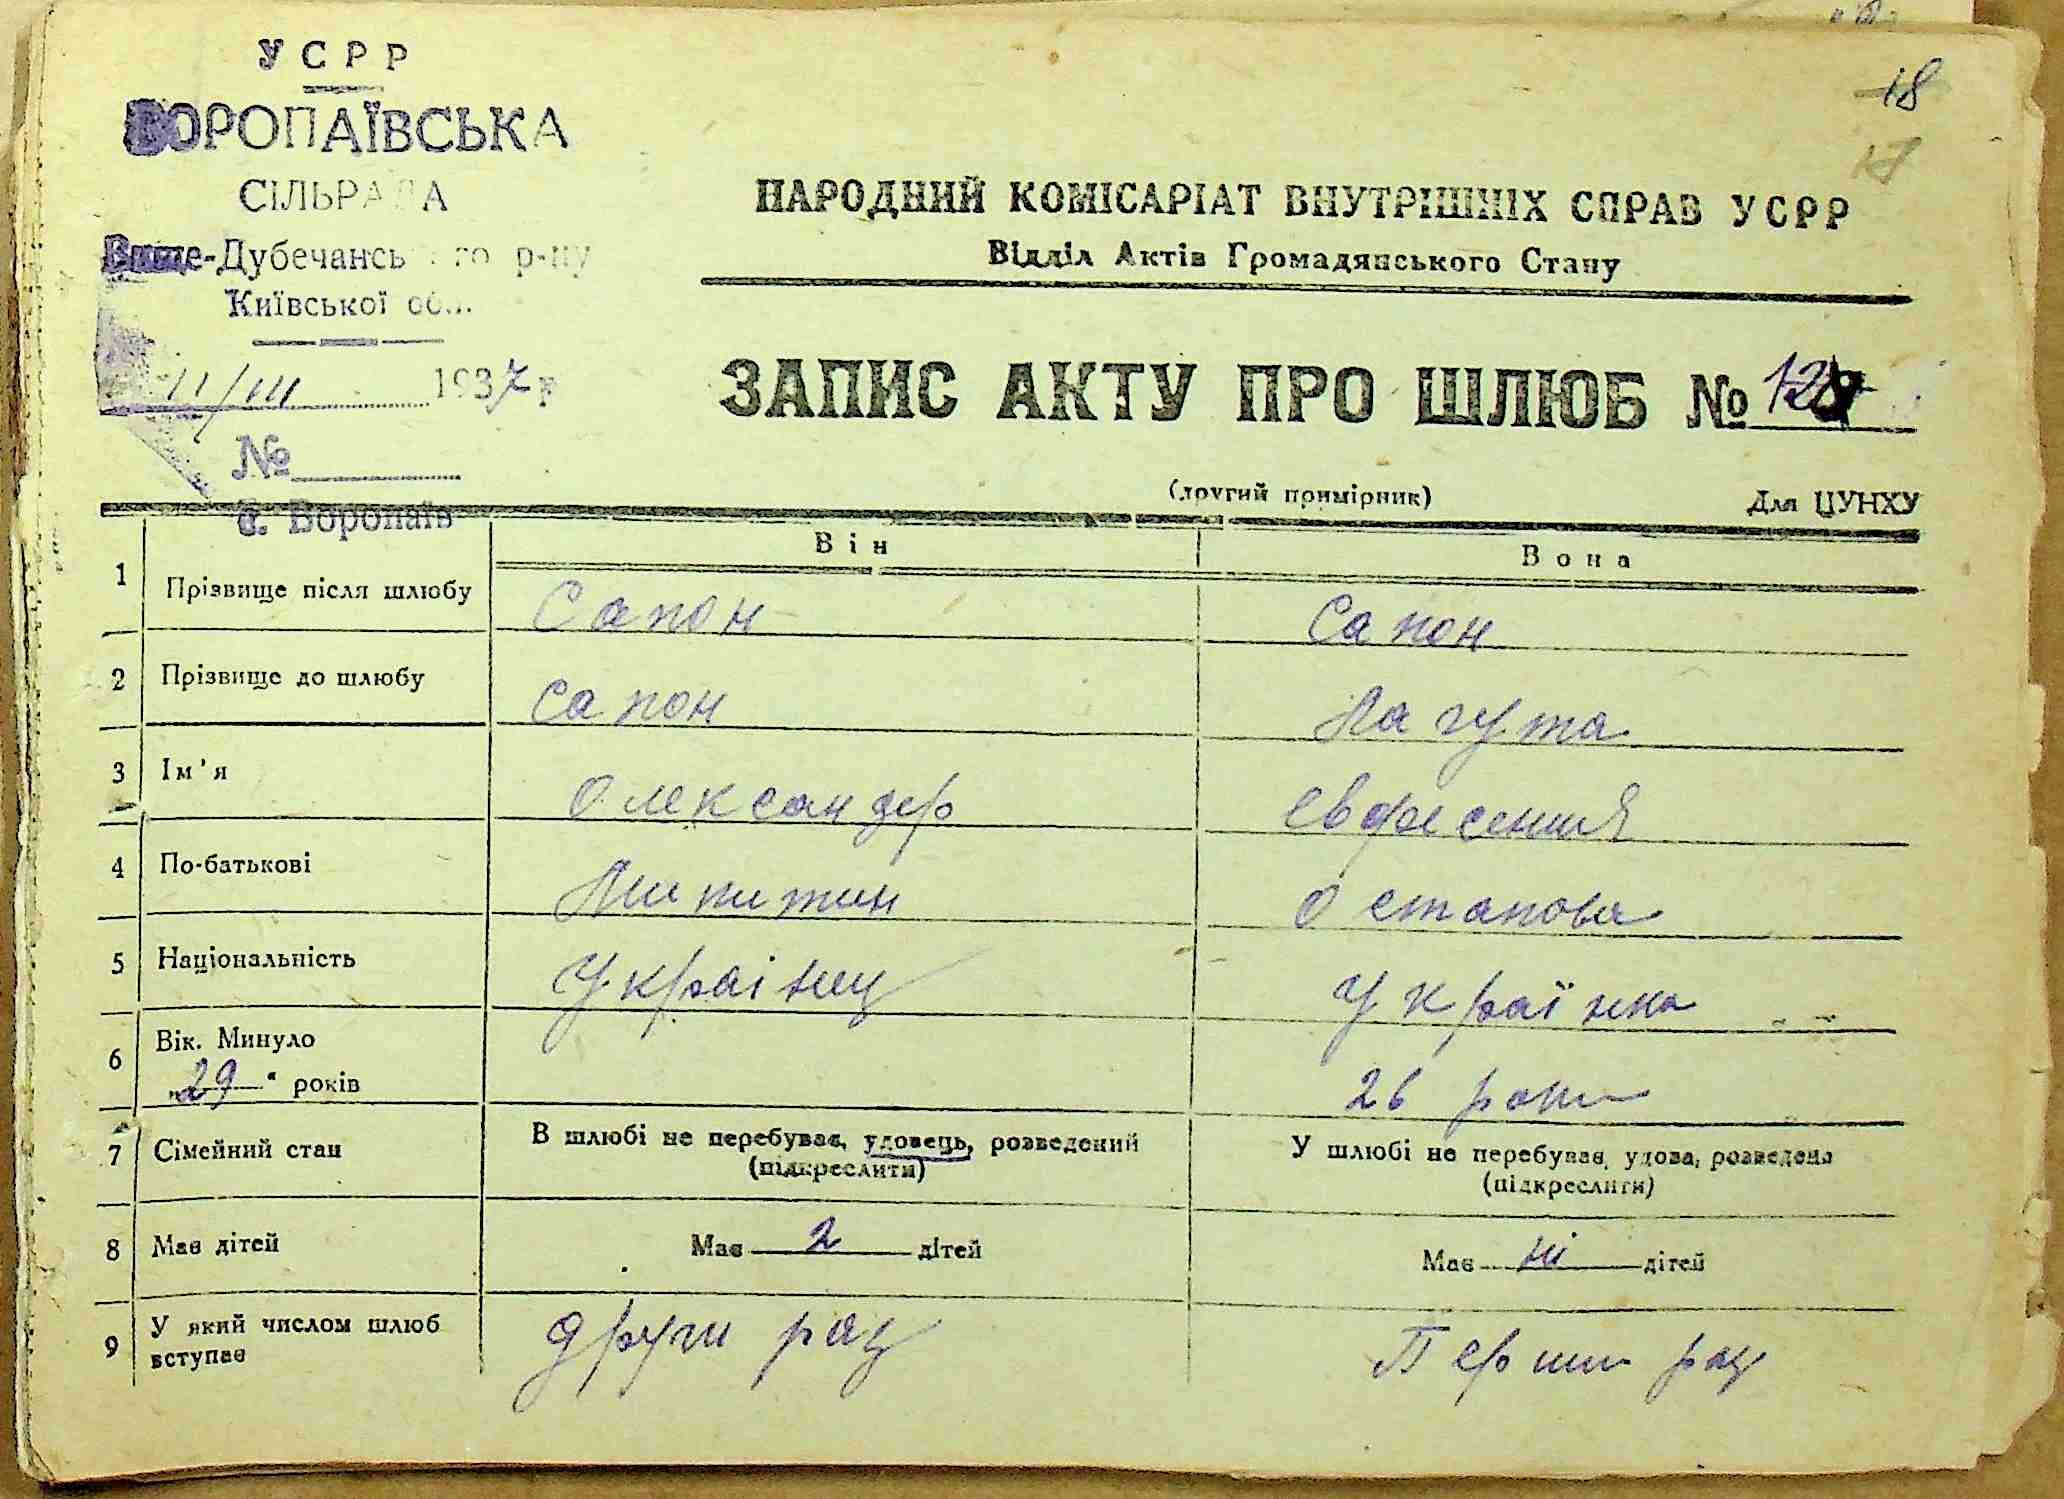 УСРР
18
ВОРОПАЇВСЬКА
СІЛЬРАДА
Вище-Дубечанського р-ну
Київської обл.
11/III 1937 р
№
с. Воропаїв
НАРОДНИЙ КОМІСАРІАТ ВНУТРІШНІХ СПРАВ УСРР
Відділ Актів Громадянського Стану
ЗАПИС АКТУ ПРО ШЛЮБ №
(другий примірник) Для ЦУНХУ
Він Вона
1 Прізвище після шлюбу Сапон Сапон
2 Прізвище до шлюбу Сапон Лагута
3 Ім'я Олександер
4 По-батькові Остапова
5 Національність Украінец Українка
6 Вік. Минуло
„29“ років 26 роки
7 Сімейний стан В шлюбі не перебуває, удовець, розведений У шлюбі не перебуває, удова, розведена
(підкреслити) (підкреслити)
8 Має дітей Має 2 дітей Має ні дітей
9 У який числом шлюб вступає други раз Перши раз